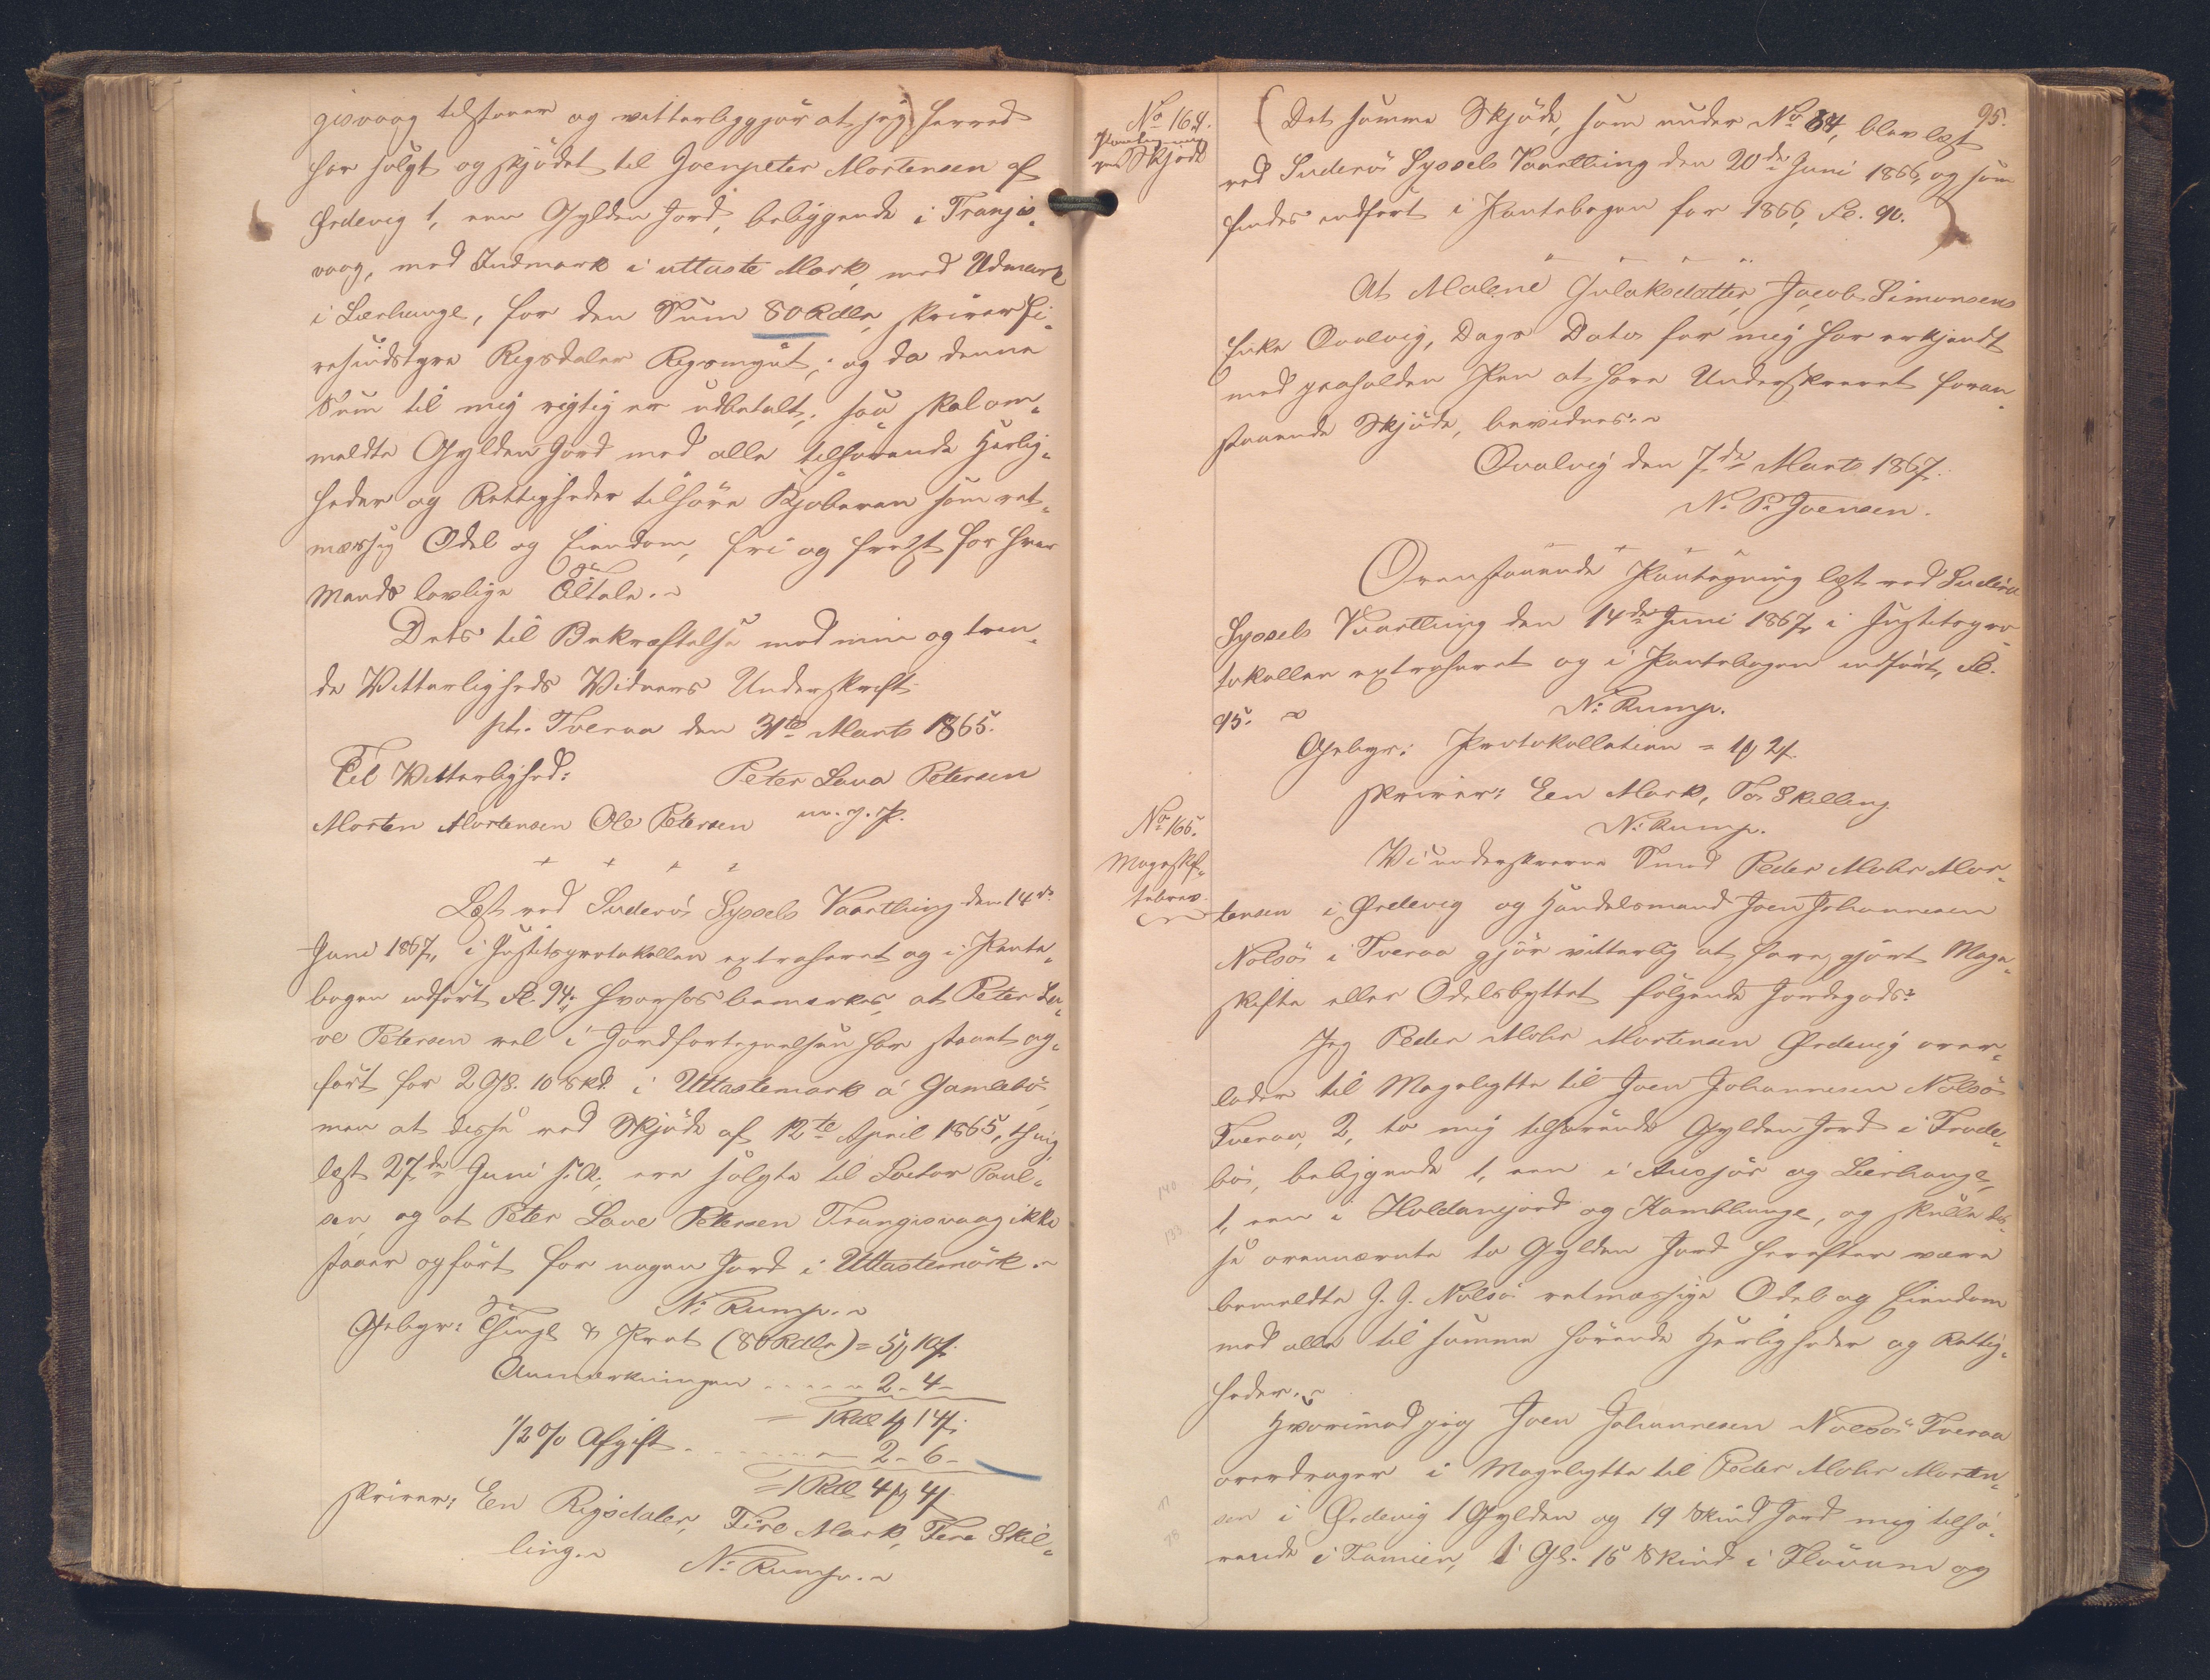 gisvaag tilstaaer og vitterliggjør at jeg herved
har solgt og skjødet til Joenpeter Mortensen af
Ørdevig 1, een Gylden Jord, beliggende i Trangis-
vaag, med Indmark i uttaste Mark, med Udmark
i Lierhauge, for den Sum 80 Rdlr, skriver fi-
resindstyve Rigsdaler Rigsmynt; og da denne
Sum til mig rigtig er udbetalt, saa skal om-
meldte Gylden Jord med alle tilhørende Herlig-
heder og Rettigheder tilhøre Kjøberen som ret-
mæssig Odel og Eiendom, fri og frelst for hver
Mands lovlige Tiltale.
Dets til Bekræftelse med min og tven-
de Vitterligheds Vidners Underskrift
pt. Tveraa den 31te Marts 1865.
Til Vitterlighed: Peter Lava Petersen
Morten Mortensen Ole Petersen m. f. P.
Læst ved Suderö Syssels Vaarthing den 14de
Juni 1867, i Justitsprotokollen extraheret og i Pante-
bogen indført Fol. 94; hvorhos bemærkes, at Peter La-
ve Petersen vel i Jordfortegnelsen har staaet op-
ført for 2 Gl. 10 Skd. i Uttastemark á Gamlebö,
men at disse ved Skjøde af 12te April 1865, thing-
læst 27de Juni s. A., ere solgte til Poul-
sen, og at Peter Lave Petersen Trangisvaag ikke
staaer opført for nogen Jord i Uttastemörk.
N. Rump.
Gebyr: Thingl & Prot (80 Rdlr) = 5 10
Anmærkningen 2 - 4 -
= 1 Rdl 1 14
1/2 % Afgift 2 - 6 -
= 1 Rdl 4 4
skriver: Een Rigsdaler, Fire Mark, Fire Skil-
ling. N. Rump.
95.
No 164.
Paategning
paa Skjøde
(Det samme Skjøde, som under No 84, blev læst
ved Suderö Syssels Vaarthing den 20de Juni 1866, og som
findes indført i Pantebogen for 1866, Fol. 90.
At Malene Joenksdatter, Jacob Simonsens
Enke Qvalvig, Dags Dato for mig har erkjendt
med paaholden Pen at have Underskrevet foran-
staaende Skjøde, bevidnes.
Qvalvig den 7de Marts 1867.
N. P. Joensen.
Ovenstaaende Paategning læst ved Suderö
Syssels Vaarthing den 14de Juni 1867, i Justitspro-
tokollen extraheret og i Pantebogen indført, Fol.
95. N. Rump.
Gebyr: Protokollation = 1 2
skriver: Een Mark, To Skilling
N. Rump.
No 165.
Mageskif-
tebrev.
Vi underskrevne Smed Peder Mohr Mor-
tensen i Ørdevig og Handelsmand Joen Johannesen
Nolsö i Tveraa gjør vitterlig at have gjort Mage-
skifte eller Odelsbyttet følgende Jordegods:
Jeg Peder Mohr Mortensen Ørdevig over-
lader til Magebytte til Joen Johannesen Nolsö
Tveraa, 2, to mig tilhørende Gylden Jord i Frode-
bö, beliggende 1, een i Ausjör og Lierhauge,
1, een i Holdanjord og Kamblhauge, og skulle dis-
se ovennævnte to Gylden Jord herefter være
bemeldte J. J. Nolsö retmæssige Odel og Eiendom
med alle til samme hørende Herligheder og Rettig-
heder.
Hvorimod jeg Joen Johannesen Nolsö Tveraa
overdrager i Magebytte til Peder Mohr Morten-
sen i Ørdevig 1 Gylden og 19 Skind Jord mig tilhø-
rende i 1 Gl. 15 Skind i og
140
133